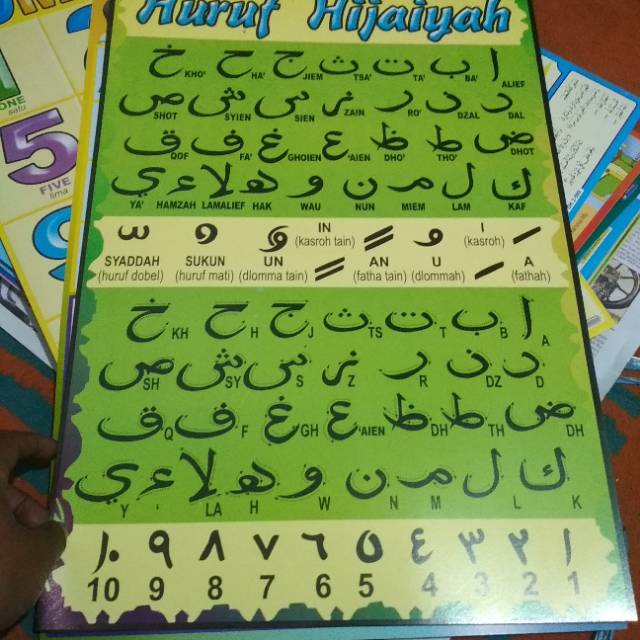 Huruf Hijaiyah
ا ب ت ث ج ح خ
ALIEF BA' TA' TSA' JIEM HA' KHO'
د ذ ر ز س ش ص
DAL DZAL RO' ZAIN SIEN SYIEN SHOT
ض ط ظ ع غ ف ق
DHOT THO' DHO' 'AIEN GHOIEN FA' QOF
ك ل م ن و ه لا ء ي
KAF LAM MIEM NUN WAU HAK LAMALIEF HAMZAH YA'
SYADDAH (huruf dobel)
SUKUN (huruf mati)
UN (dlomma tain)
IN (kasroh tain)
AN (fatha tain)
U (dlommah)
I (kasroh)
A (fathah)
ا ب ت ث ج ح خ
A B T TS J H KH
د ذ ر ز س ش ص
D DZ R Z S SY SH
ض ط ظ ع غ ف ق
DH TH DH 'AIEN GH F Q
ك ل م ن و ه لا ء ي
K L M N W H LA ' Y
١٠ ٩ ٨ ٧ ٦ ٥ ٤ ٣ ٢ ١
10 9 8 7 6 5 4 3 2 1
ONE
satu
5
FIVE
lima